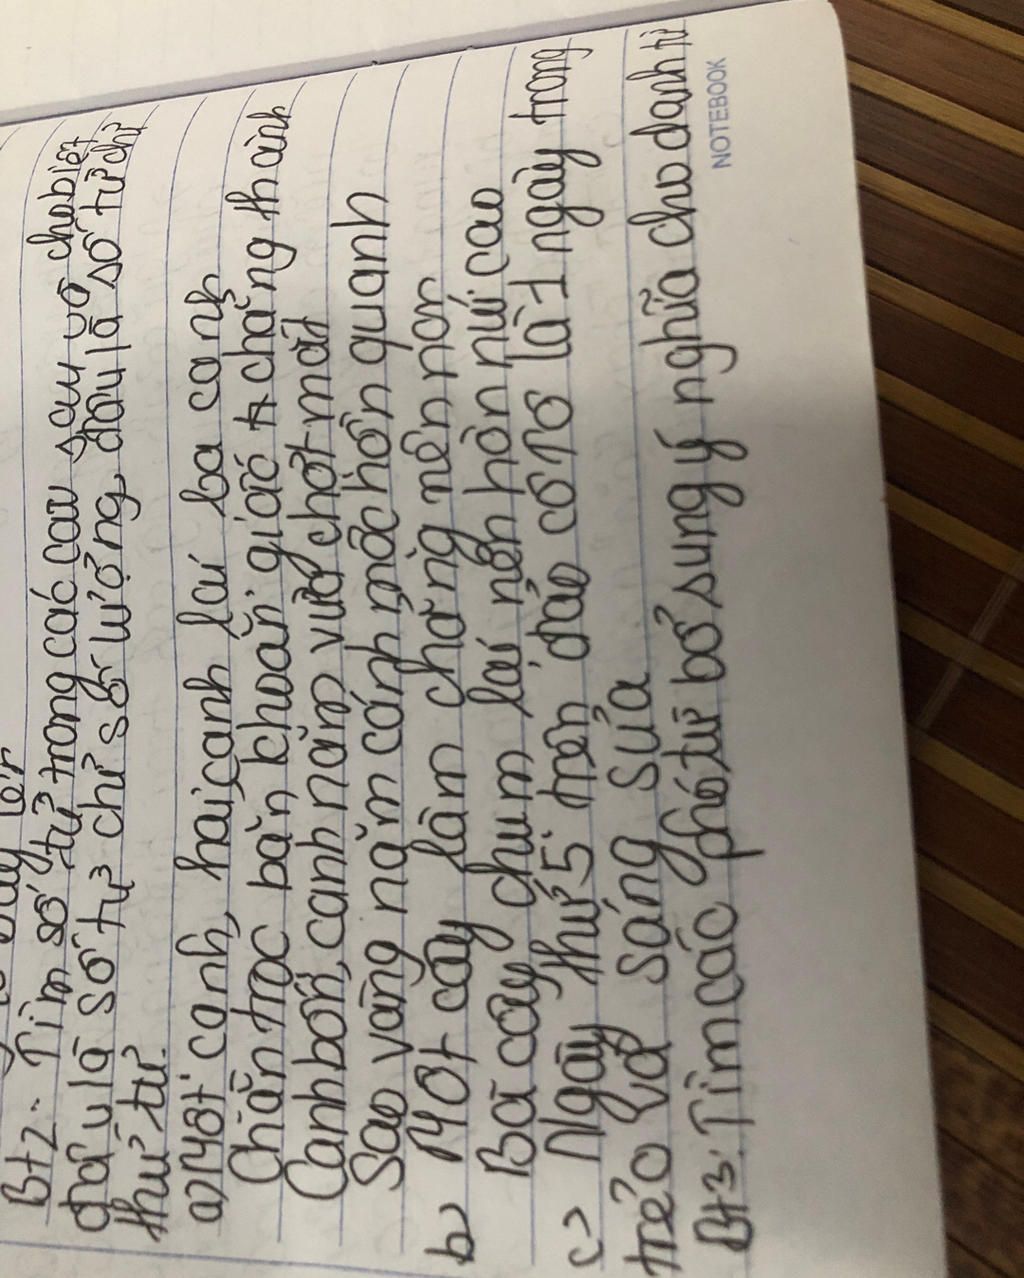 Bt2. Tìm số từ trong các câu sau và cho biết
đâu là số từ chỉ số lượng, đâu là số từ chỉ
thứ tự.
a) Một canh, hai canh lại ba canh
Chằn trọc băn khoăn giấc chẳng thành
Canh bốn, canh năm vừa chớt mắt
Sao vàng năm cánh mộc hồn quanh
b) Một cây làm chẳng nên non
Ba cây chụm lại nên hòn núi cao
c) Ngày thứ 5 trên đảo cô Tô là 1 ngày trong
trẻo và sáng sủa
Bt3. Tìm các phó từ bổ sung ý nghĩa cho danh từ
NOTEBOOK